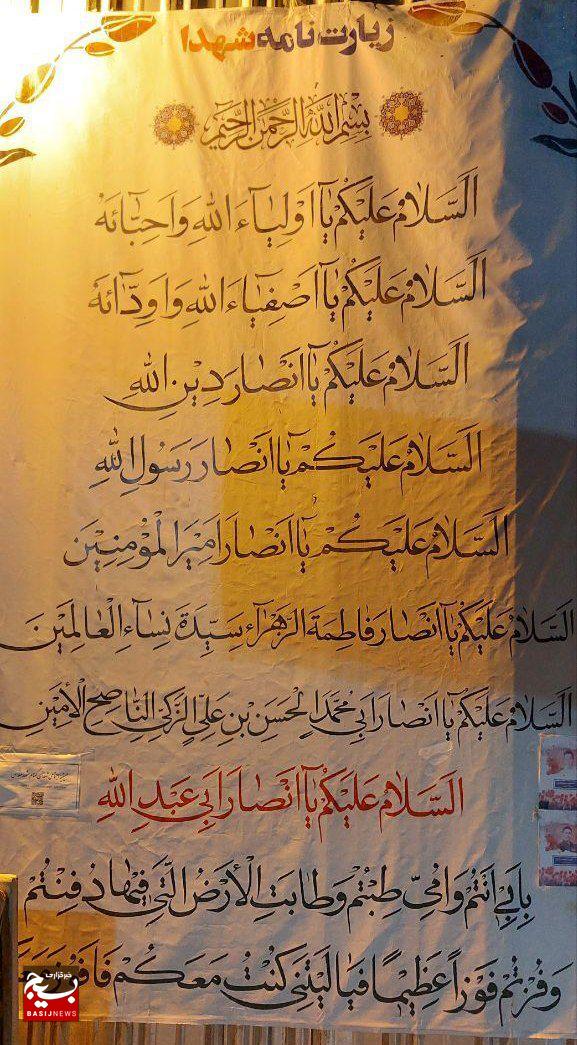 زیارت نامه شهدا
بِسْمِ اللهِ الرَّحْمنِ الرَّحیمِ
اَلسَّلامُ عَلَیْکُمْ یٰآ اَوْلِیٰآءَ اللهِ وَ اَحِبّٰائَهُ
اَلسَّلامُ عَلَیْکُمْ یٰآ اَصْفِیٰآءَ اللهِ وَ اَوِدّٰآئَهُ
اَلسَّلامُ عَلَیْکُمْ یٰآ اَنْصٰارَ دِیْنِ اللهِ
اَلسَّلامُ عَلَیْکُمْ یٰآ اَنْصٰارَ رَسُولِ اللهِ
اَلسَّلامُ عَلَیْکُمْ یٰآ اَنْصٰارَ اَمیْرِ الْمُؤْمِنیْنَ
اَلسَّلامُ عَلَیْکُمْ یٰآ اَنْصٰارَ فٰاطِمَةَ الزَّهْرٰآءِ سَیِّدَةَ نِسٰآءِ الْعٰالَمیْنَ
اَلسَّلامُ عَلَیْکُمْ یٰآ اَنْصٰارَ اَبی مُحَمَّدٍ الْحَسَنِ بْنِ عَلیٍّ الزَّکیِّ النّٰاصِحِ الْاَمیْنِ
اَلسَّلامُ عَلَیْکُمْ یٰآ اَنْصٰارَ اَبی عَبْدِ اللهِ
بِاَبی اَنْتُمْ وَ اُمّی طِبْتُمْ وَ طٰابَتِ الْاَرْضُ الَّتی فیْهٰا دُفِنْتُمْ
وَ فُزْتُمْ فَوْزاً عَظیْماً فَیٰا لَیْتَنی کُنْتُ مَعَکُمْ فَاَفُوْزَ
خبرگزاری
بسیج
BASIJNEWS